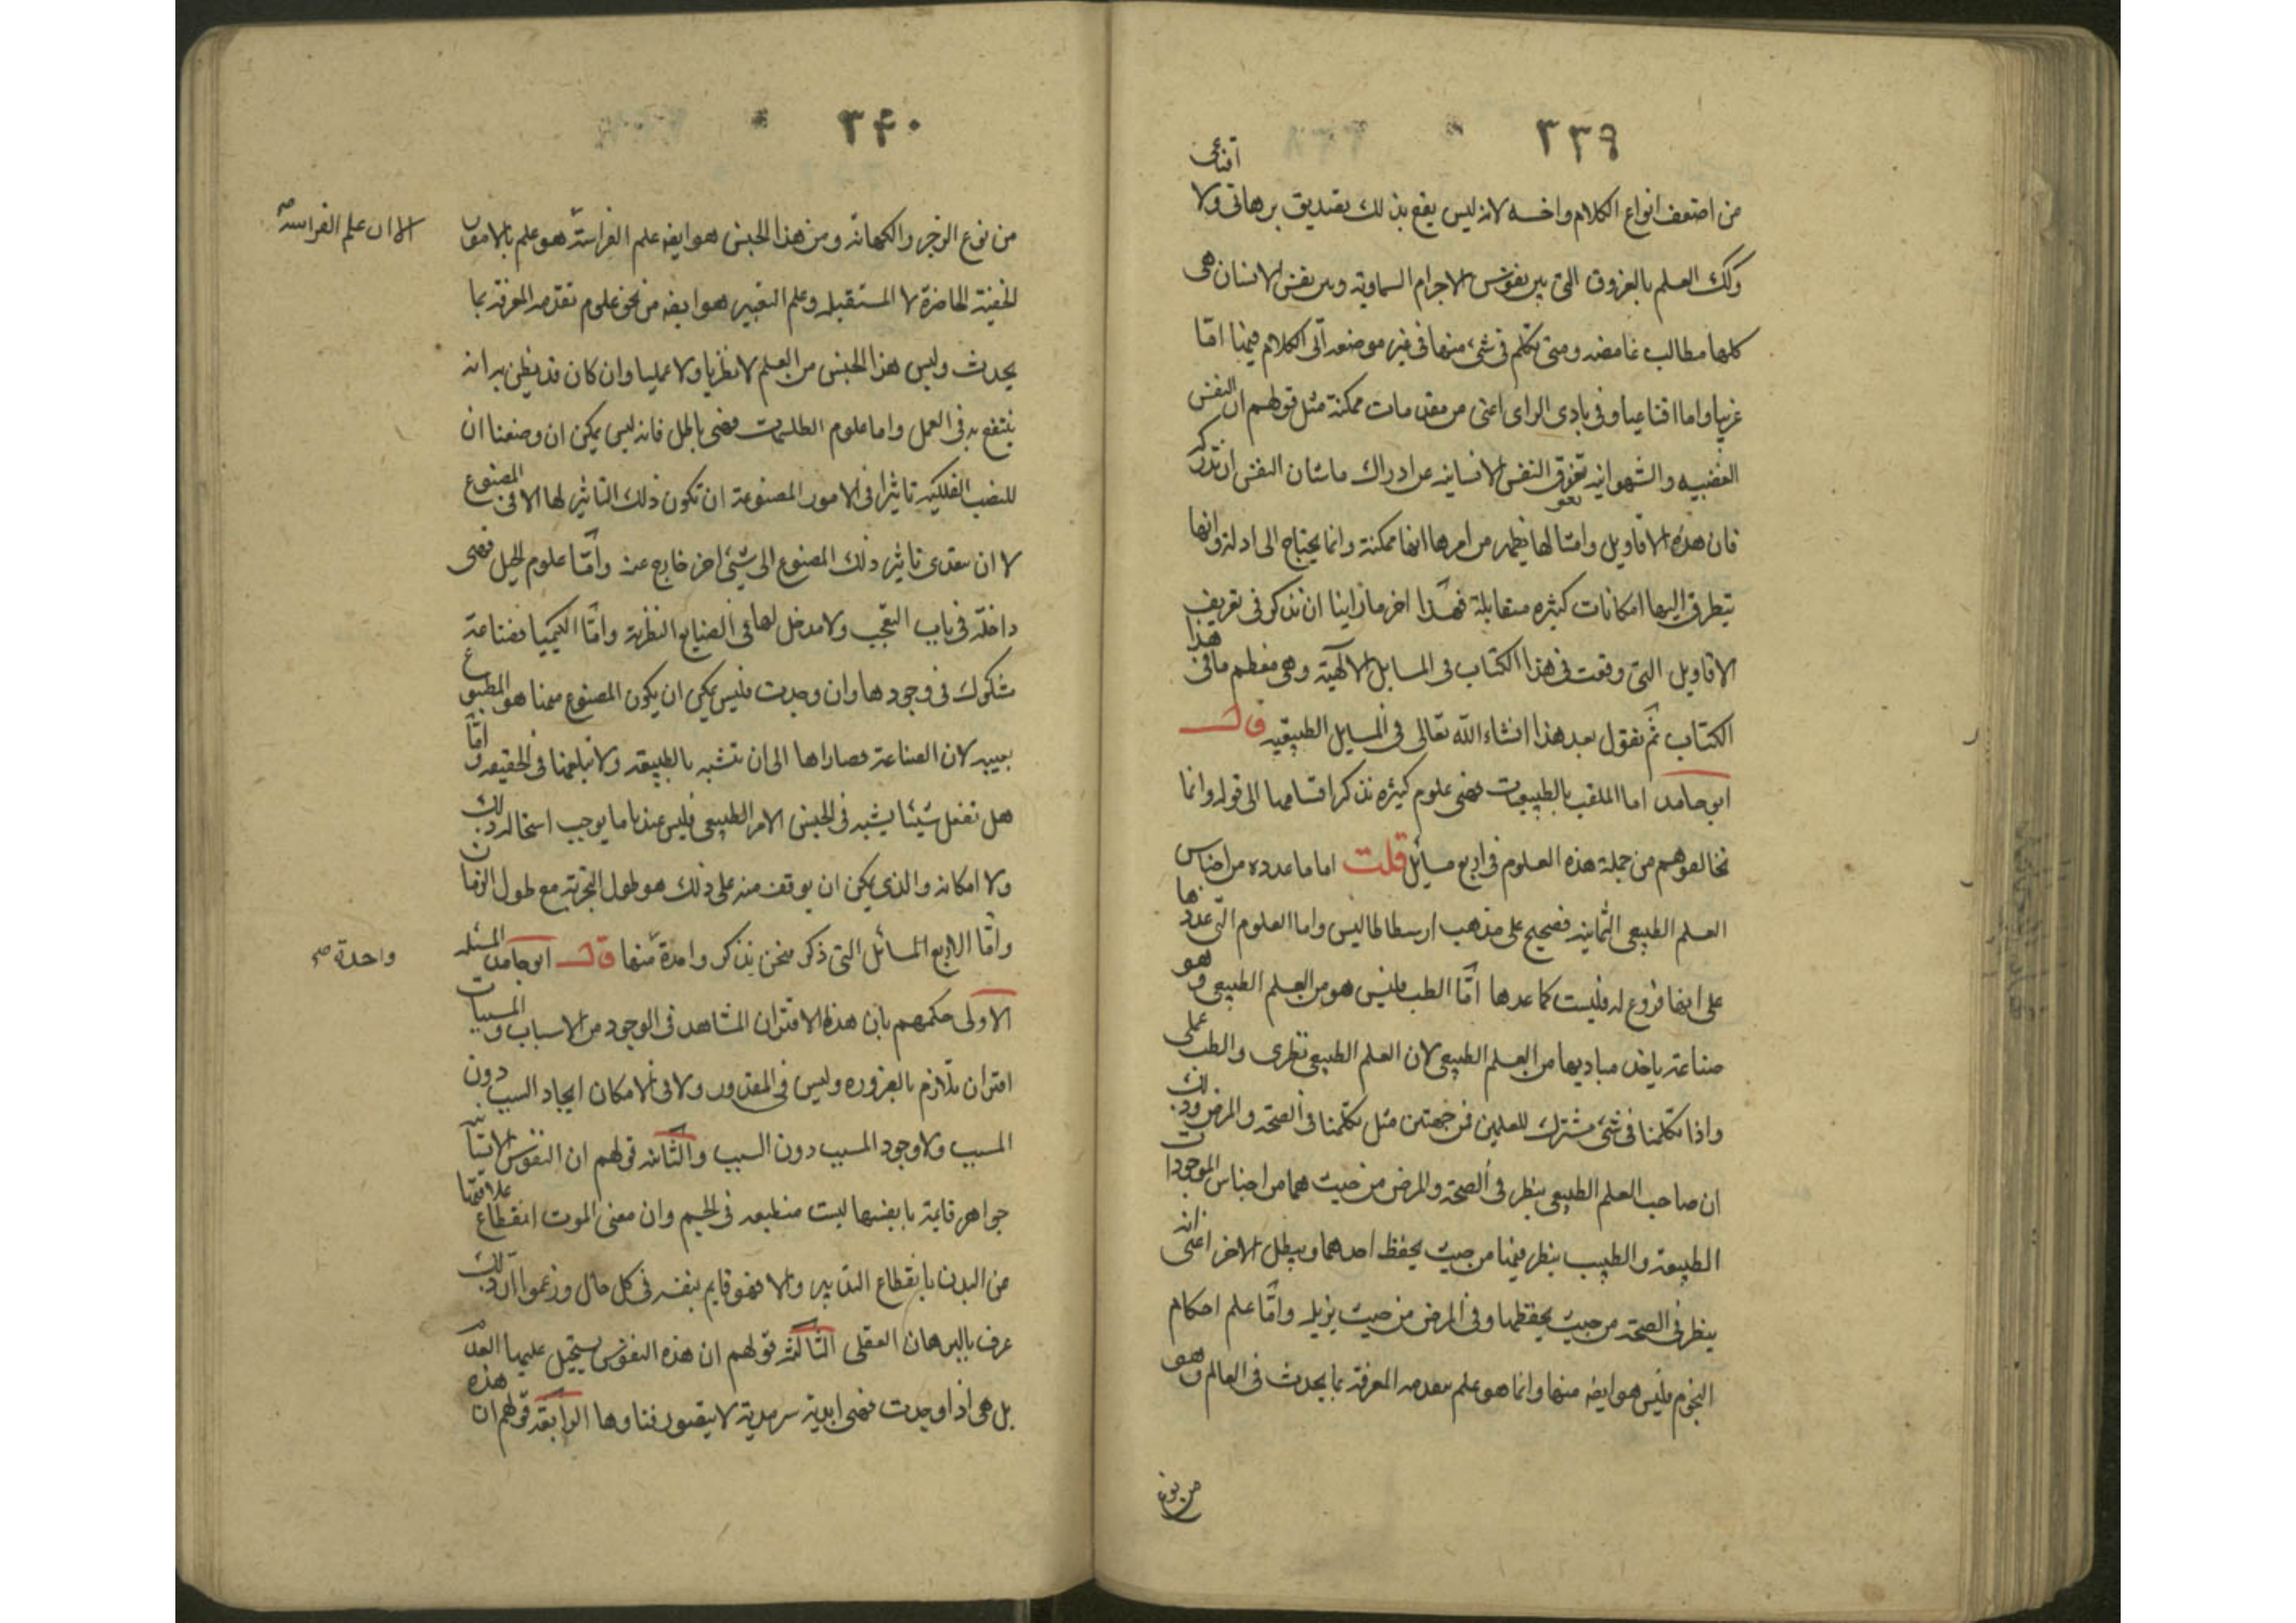 ٣٣٩
من اضعف انواع الكلام واخسه لانه ليس يقع بذلك تصديق برهانى ولا اقناعى
وكك العلم بالفروق التى بين نفوس الاجرام السماوية وبين نفس الانسان هى
كلها مطالب غامضه ومتى تكلم فى شىء منها فى غير موضعه اتى الكلام فيها امّا
غريبا واما اقناعيا وفى بادى الراى اعنى من مقدمات ممكنة مثل قولهم ان النفس
الغضبيه والشهوانيه تعوق النفس الانسانيه عن ادراك ما شان النفس ان تدرك
تعو
فان هذه الاقاويل وامثالها يظهر من امرها انها ممكنة وانما يحتاج الى ادلة وانها
يتطرق اليها امكانات كثيره متقابلة فهذا اخر ما راينا ان نذكر فى تعريف
الاقاويل التى وقعت فى هذا الكتاب فى المسايل الالهية وهى معظم ما فى هذا
الكتاب ثم نقول بعد هذا انشاء الله تعالى فى المسايل الطبيعيه قال
ابو حامد اما الملقب بالطبيعيات فهى علوم كثيره نذكر اقسامها الى قوله وانما
نخالفوهم من جملة هذه العلوم فى اربع مسائل قلت اما ما عدده من اجناس
العلم الطبيعى الثمانيه فصحيح على مذهب ارسطاطاليس واما العلوم التى عددها
على انها فروع له فليست كما عدها امّا الطب فليس هو من العلم الطبيعى وهو
صناعة ياخذ مباديها من العلم الطبيعى لان العلم الطبيعى نظرى والطب عملى
واذا تكلمنا فى شىء مشترك للعلمين فمن جهتين مثل تكلمنا فى الصحة والمرض وذلك
ان صاحب العلم الطبيعى ينظر فى الصحة والمرض من حيث هما من اجناس الموجودات
الطبيعة والطبيب ينظر فيها من حيث يحفظ احدهما ويبطل الاخر اعنى انه
ينظر فى الصحة من حيث يحفظها وفى المرض من حيث يزيله وامّا علم احكام
النجوم فليس هو ايضه منها وانما هو علم بتقدمه المعرفة بما يحدث فى العالم وهو
من نوع
٣٤٠
من نوع الزجر والكهانه ومن هذا الجنس هو ايضه علم الفراسة هو علم بالامور
الا ان علم الفراسة صح
الخفية الحاضرة لا المستقبله وعلم التعبير هو ايضه من نحو علوم تقدمه المعرفة بما
يحدث وليس هذا الجنس من العلم لا نظريا ولا عمليا وان كان قد يظن به انه
ينتفع به فى العمل واما علوم الطلسمات فهى باطل فانه ليس يمكن ان وضعنا ان
للنصب الفلكيه تاثيرا فى الامور المصنوعة ان تكون ذلك التاثير لها الا فى المصنوع
لا ان يتعدى تاثير ذلك المصنوع الى شىء اخر خارج عنه وامّا علوم الحيل فهى
داخلة فى باب التعجب ولا مدخل لها فى الصنايع النظرية وامّا الكيميا فصناعة
مشكوك فى وجودها وان وجدت فليس يمكن ان يكون المصنوع منها هو المطبوع
بعينه لان الصناعة قصاراها الى ان تتشبه بالطبيعة ولا تبلغها فى الحقيقه وامّا
هل تفعل شيئا يشبه فى الجنس الامر الطبيعى فليس عندنا ما يوجب استحاله ذلك
ولا امكانه والذى يمكن ان يوقف منه على ذلك هو طول التجربة مع طول الزمان
وامّا الاربع المسائل التى ذكر فنحن نذكر واحدة منها قال ابو حامد المسئله
واحدة صح
الاولى حكمهم بان هذا الاقتران المشاهد فى الوجود من الاسباب والمسببات
اقتران تلازم بالضروره وليس فى المقدور ولا فى الامكان ايجاد السبب دون
المسبب ولا وجود المسبب دون السبب والثانيه قولهم ان النفوس الانسانية
جواهر قايمة بانفسها ليست منطبعه فى الجسم وان معنى الموت انقطاع علاقتها
من البدن بانقطاع التدبير والا فهو قايم بنفسه فى كل حال وزعموا ان ذلك
عرف بالبرهان العقلى الثالثه قولهم ان هذه النفوس يستحيل عليها العدم
بل هى اذا وجدت فهى ابدية سرمدية لا يتصور فناوها الرابعة قولهم ان هذه